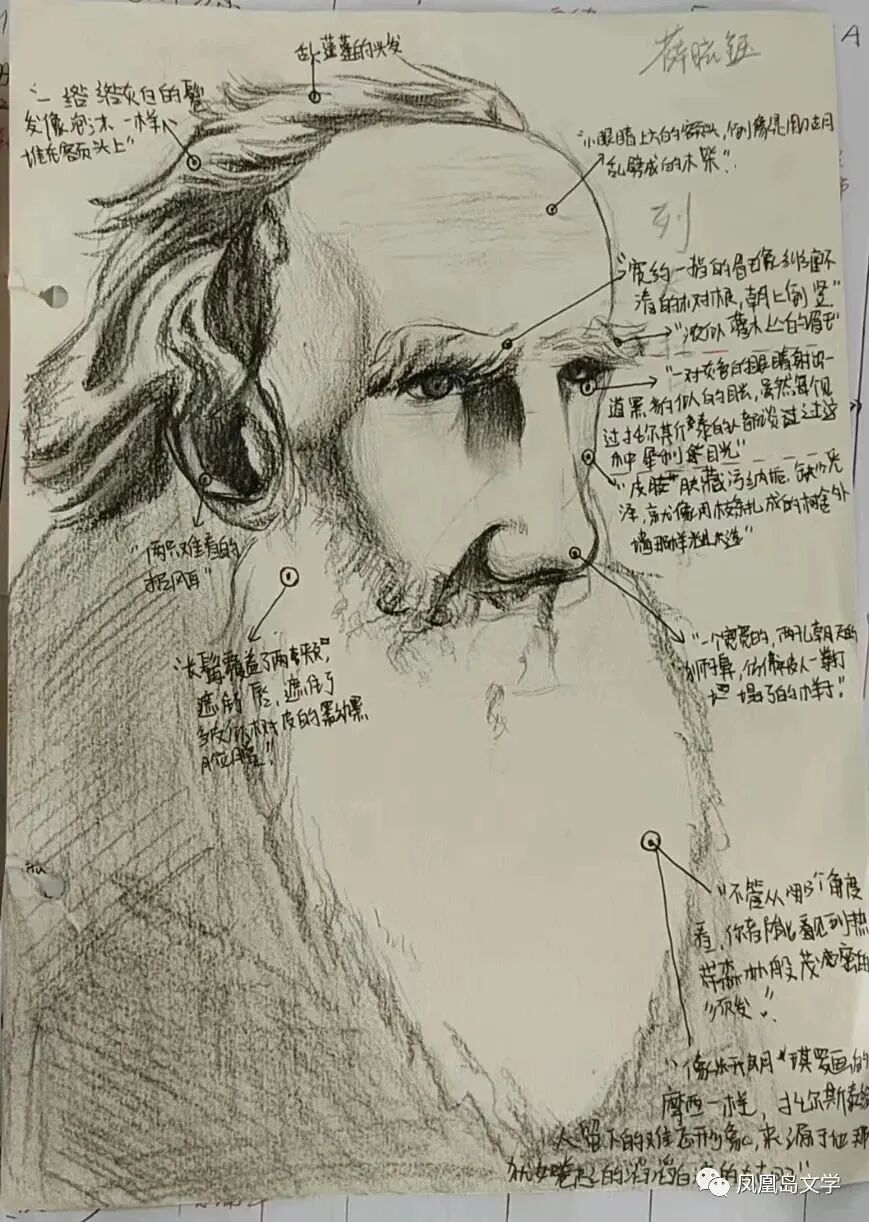 乱蓬蓬的头发
"一绺绺灰白的鬈
发像泡沫一样
堆在额头上"
"小眼睛上大的额头,倒像是用刀胡
乱劈成的木柴".
"宽约一指的眉毛像纠缠不
清的树根,朝上倒竖"
"浓似灌木丛的眉毛
"一对灰色的眼睛射出一
道黑豹似的目光,虽然每个见
过托尔斯泰的人都谈过过这
种犀利目光"
"皮肤藏污纳垢,缺少光
泽,就像用枝条扎成的村舍外
墙那样粗糙"
"两只难看的
招风耳"
"一个宽宽的,两孔朝天的
狮子鼻,仿佛被人一拳打
塌了的样子".
"长髯覆盖了两颊,
遮住唇,遮住了
皱似树皮的黝黑
脸膛".
"不管从哪个角度
看,你都能看见到热
带森林般茂密的
须发".
"像米开朗琪罗画的
摩西一样,托尔斯泰给
人留下的难忘形象,来源于他那
犹如卷起的滔滔白浪的
凤凰岛文学